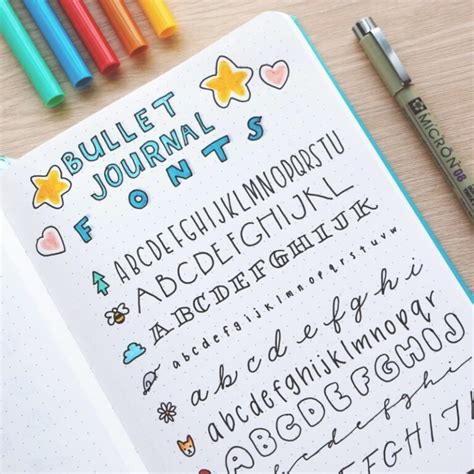 BULLET
JOURNAL
FONTS
ABCDEFGHIJKLMNOPQRSTU
ABCDEFGHIJKL
ABCDEFGHIJK
abcdefghijklmnopqrstuvw
a b c d e f g h i
abcdefghijklmnopqr
ABCDEFGHIJ
MICRON 08